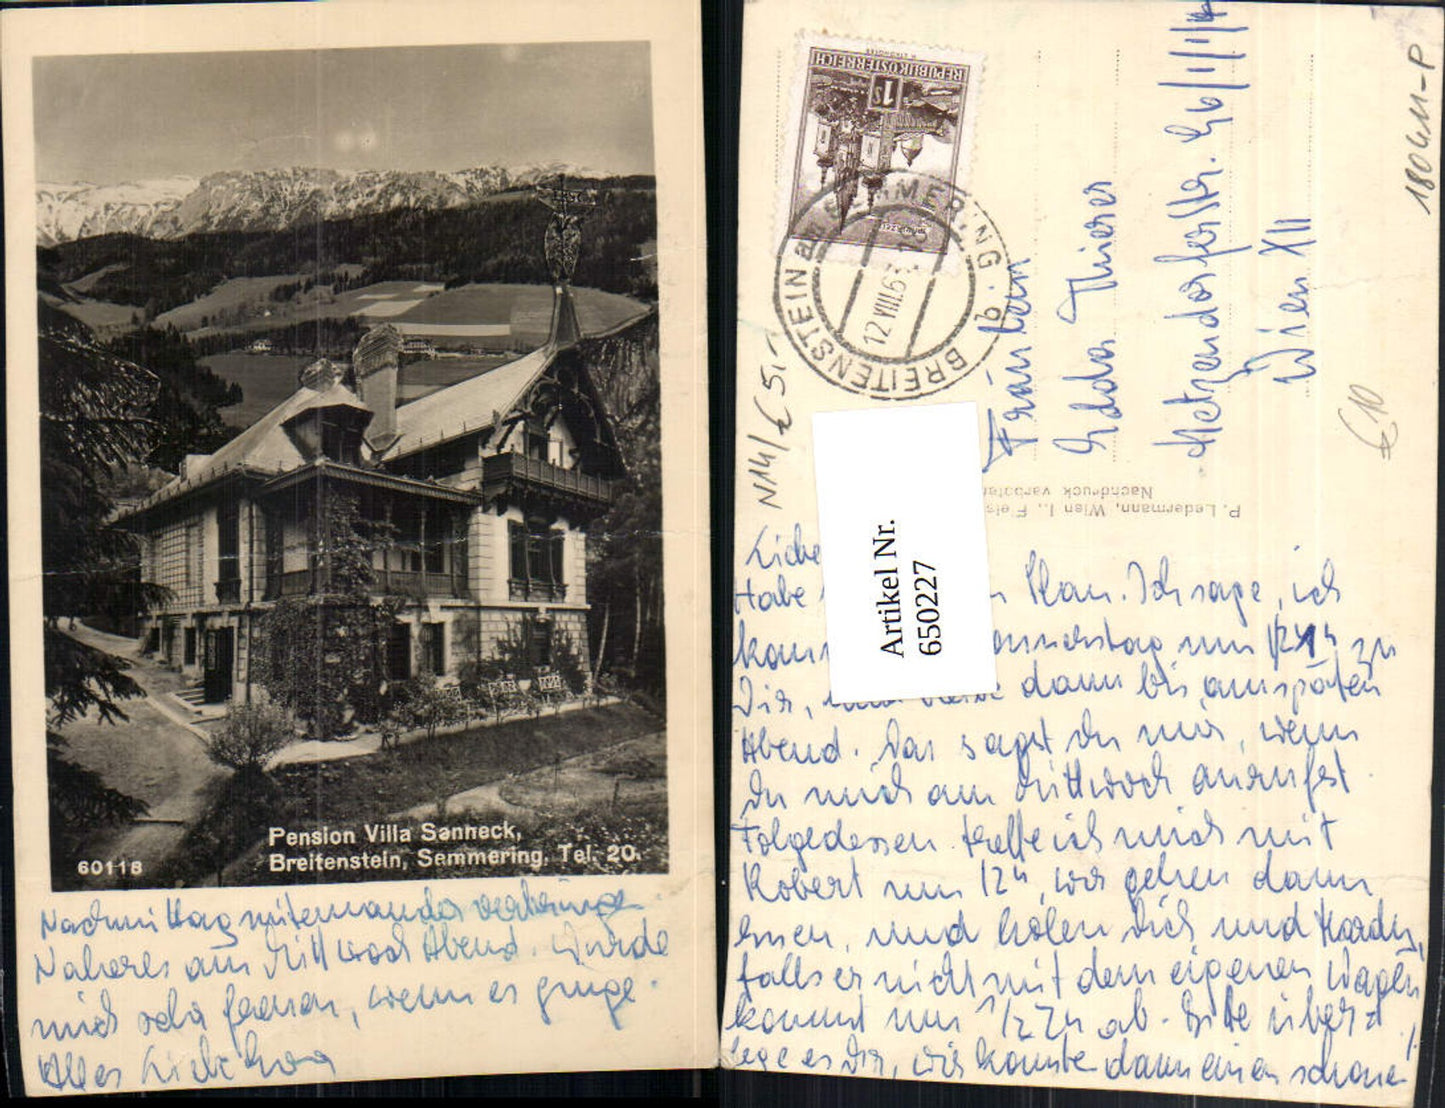 Pension Villa Sanneck,
Breitenstein, Semmering, Tel. 20.
60118
Nachmittag miteinander verbringen.
Näheres am Mittwoch Abend. Würde
mich sehr freuen, wenn es ginge.
Alles Liebe
REPUBLIK ÖSTERREICH
1S
BREITENSTEIN am SEMMERING
12.VIII.6
BREITENSTEIN
Fräulein
Edda Thieres
Hetzendorferstr.
Wien XII
180411-P
€10
N14/€5.-
P. Ledermann, Wien I.,
Nachdruck verboten
Artikel Nr.
650227
Liebe
Habe Plan. Ich sage, ich
um zu
Dir, dann bis am späten
Abend. Das sagst Du mir, wenn
Du mich am Mittwoch anrufst.
Folgedessen treffe ich mich mit
Robert um 12h, wir gehen dann
essen, und holen Dich und
falls er nicht mit dem eigenen Wagen
kommt um 1/2 2h ab. Bitte über-
lege es Dir, wir könnten dann einen schönen